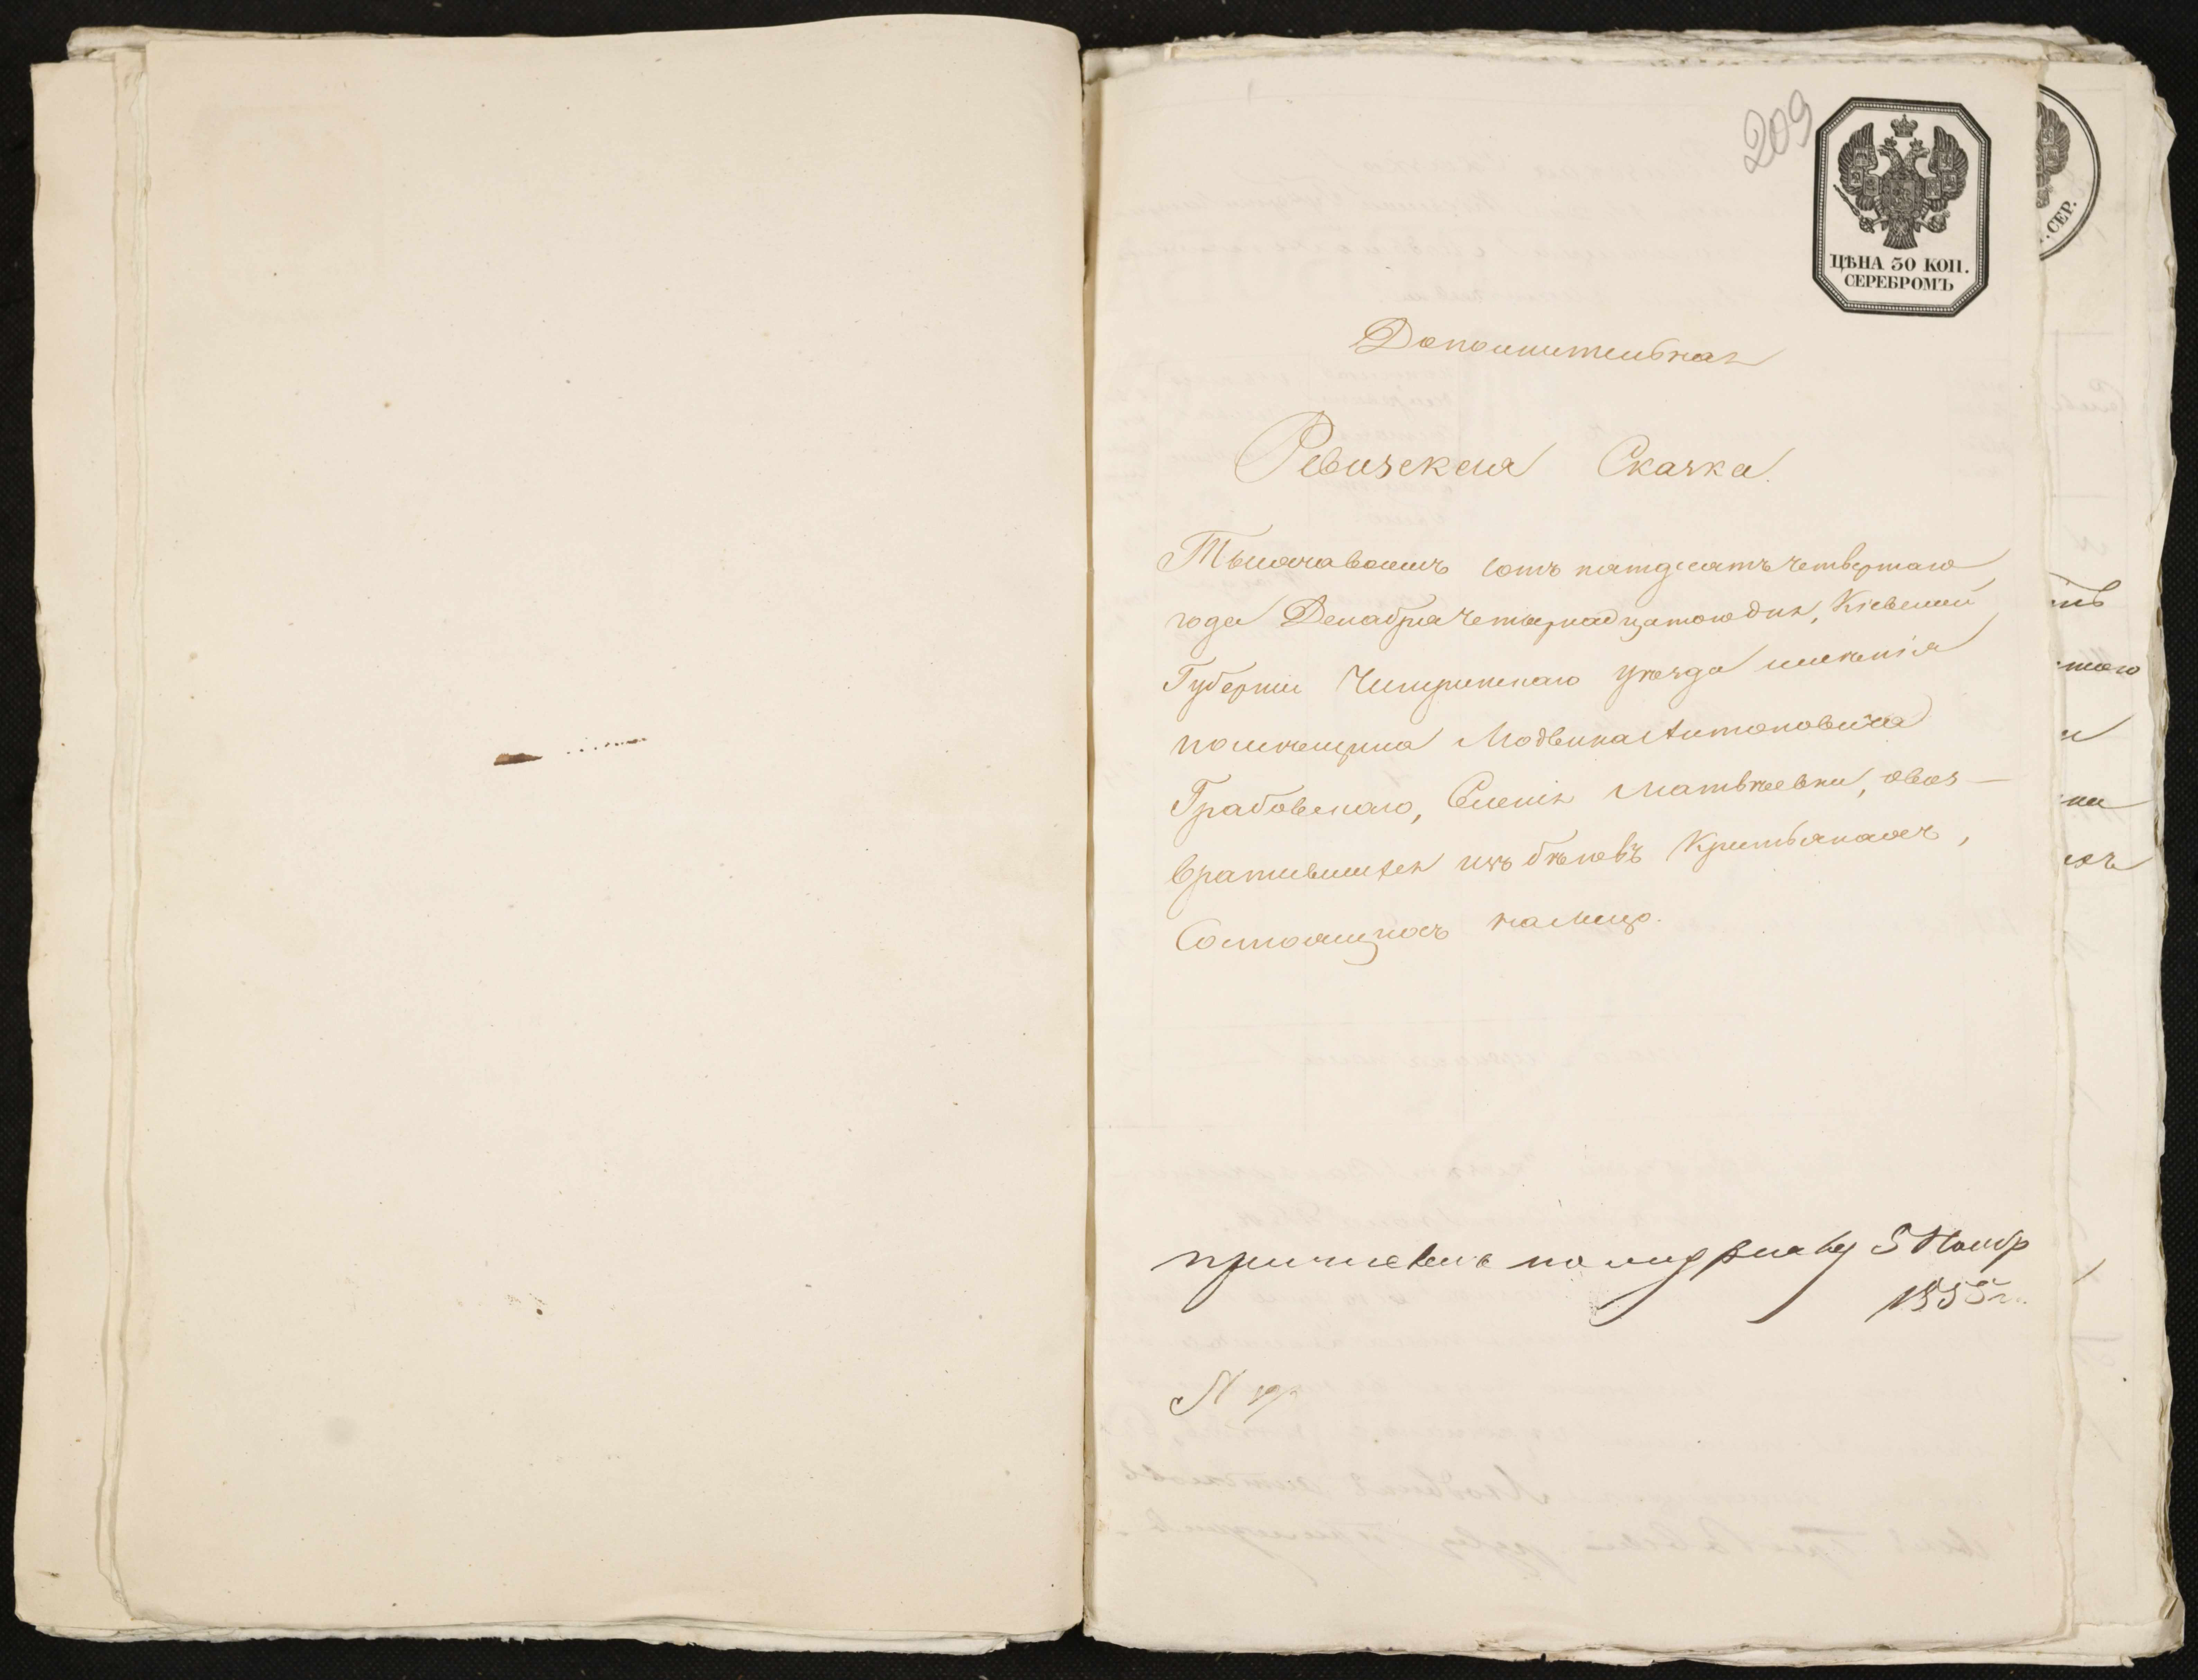 209
ЦѢНА 30 КОП.
СЕРЕБРОМЪ
. СЕР.
Дополнительная
Ревизская Сказка.
Тысяча восемь сотъ пятдесятъ четвертаго
года Декабря четырнадцатого дня, Кіевской
Губерніи Чигиринскаго уѣзда имѣнія
помѣщика Людвика Антоновича
Грабовскаго, Селенія Матвѣевки, овоз-
вратившихся изъ бѣговъ Крестьянахъ,
Состоящихъ налицо.
5 Ноябр
1855 г.